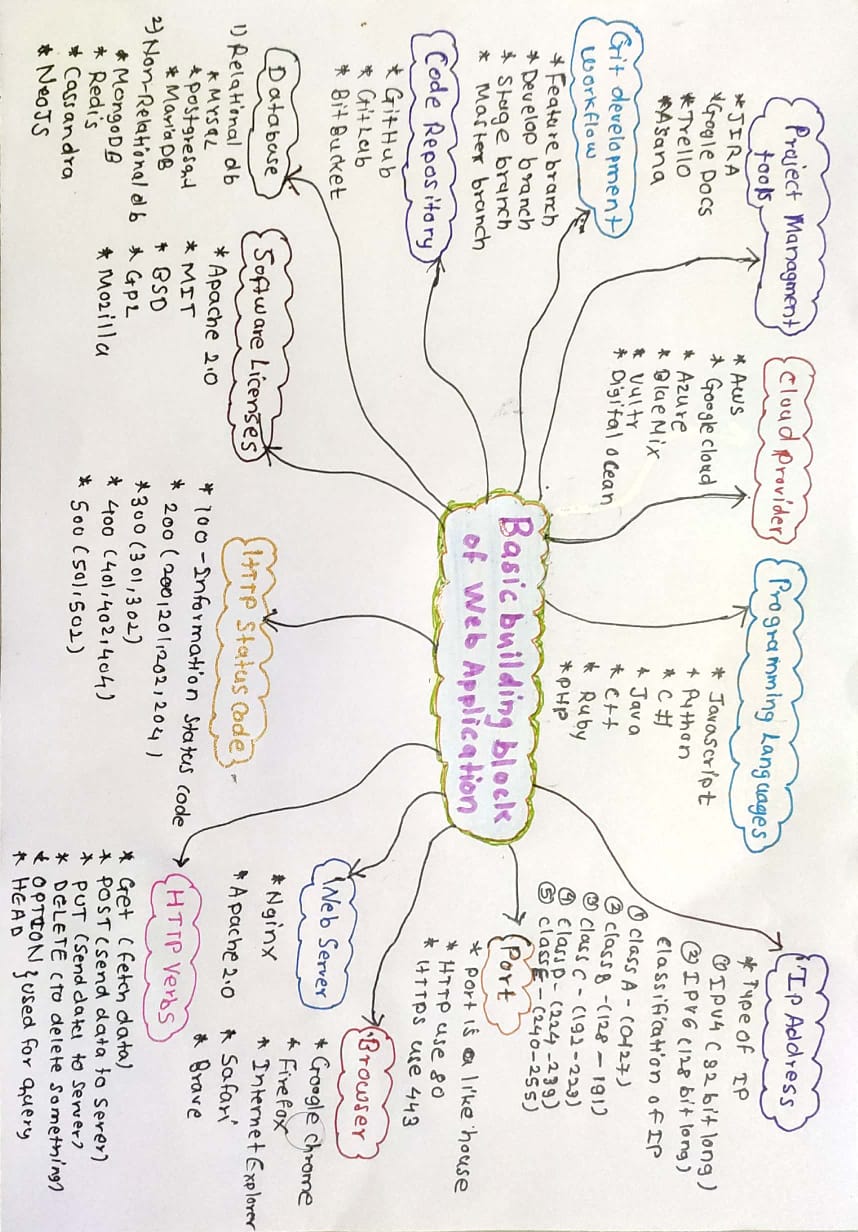 Basic building block
of Web Application
Project Managment
tools
* JIRA
* Gogle Docs
* Trello
* Asana
Cloud Provider
* AWS
* Google cloud
* Azure
* BlaeMix
* Vultr
* Digital ocean
Programming Languages
* Javascript
* Python
* C#
* Java
* C++
* Ruby
* PHP
Ip Address
* Type of IP
① IPV4 (32 bit long)
② IPV6 (128 bit long)
Classification of IP
① Class A - (0-127)
② class B - (128 - 191)
③ Class C - (192-223)
④ Class D - (224 - 239)
⑤ class E - (240-255)
Git development
workflow
* Feature branch
* Develop branch
* Stage branch
* Master branch
Port
* port is a like house
* HTTP use 80
* HTTPS use 443
Code Repository
* GitHub
* GitLab
* BitBucket
Browser
* Google chrome
* Firefox
* Internet Explorer
* Safari
* Brave
Web Server
* Nginx
* Apache 2.0
Database
1) Relational db
* MYSQL
* postgresql
* MariaDB
2) Non-Relational db
* MongoDB
* Redis
* Cassandra
* NeoJS
Software Licenses
* Apache 2.0
* MIT
* BSD
* GPL
* Mozilla
HTTP Status Code
* 100 - Information Status code
* 200 (200,201,202,204)
* 300 (301,302)
* 400 (401,402,404)
* 500 (501,502)
HTTP Verbs
* Get (fetch data)
* POST (send data to Serer)
* PUT (Send data to server)
* DELETE (to delete something)
* OPTION } used for query
* HEAD